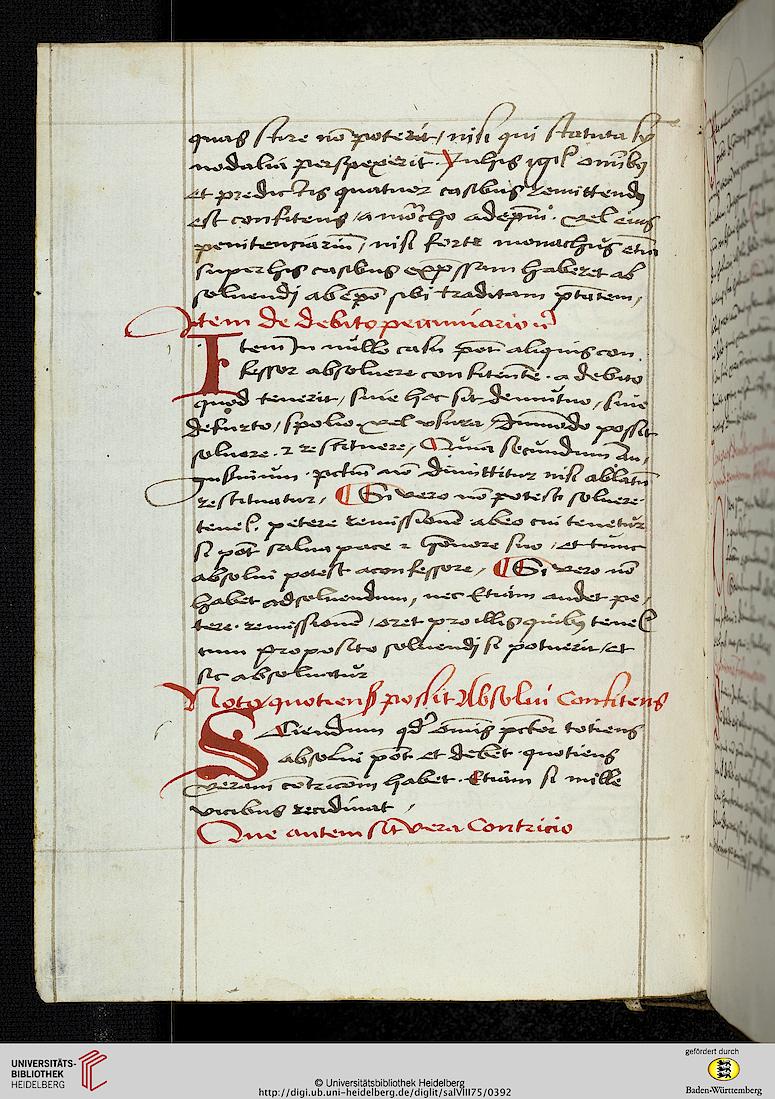 quas scire nō poterit / nisi qui statuta sy
nodalia perspexerit. In his igit' omībꝫ
et predictis quatuor casibus remittendꝫ
est confitens / a mōcho ad ep̄m. vel eius
penitenciariū / nisi forte monachus etiā
super his casibus exp̄ssam haberet ab
soluendi ab ep̄o sibi traditam p̄tātem,
Item de debito pecuniario
Item In nullo casu pōt aliquis con
fessor absoluere confitentē. a debito
quod tenetur, siue hoc sit de mutuo, siue
de furto / spolio vel vsura, dūmodo possit
soluere. ⁊ restituere, Quia secundum Au
gustinum. pctm̄ nō dimittitur nisi ablatū
restituatur, ¶ Si vero nō potest soluere
tenet'. petere remissionē ab eo cui tenetur
si pōt salua pace ⁊ honore suo / et tunc
absolui potest a confessore, ¶ Si vero nō
habet ad soluendum, nec etiam audet pe
tere remissionē / oret pro illis quibꝫ tenet'
cum proposito soluendi si potuerit / et
sic absoluatur
Nota quotiens possit Absolui Confitens
Sciendum qd' omīs pctor totiens
absolui pōt et debet. quotiens
veram cōtricōm habet. Etiam si mille
vicibus recidiuat,
Que autem sit vera Contricio
UNIVERSITÄTS-
BIBLIOTHEK
HEIDELBERG
© Universitätsbibliothek Heidelberg
http://digi.ub.uni-heidelberg.de/diglit/salVIII75/0392
gefördert durch
Baden-Württemberg